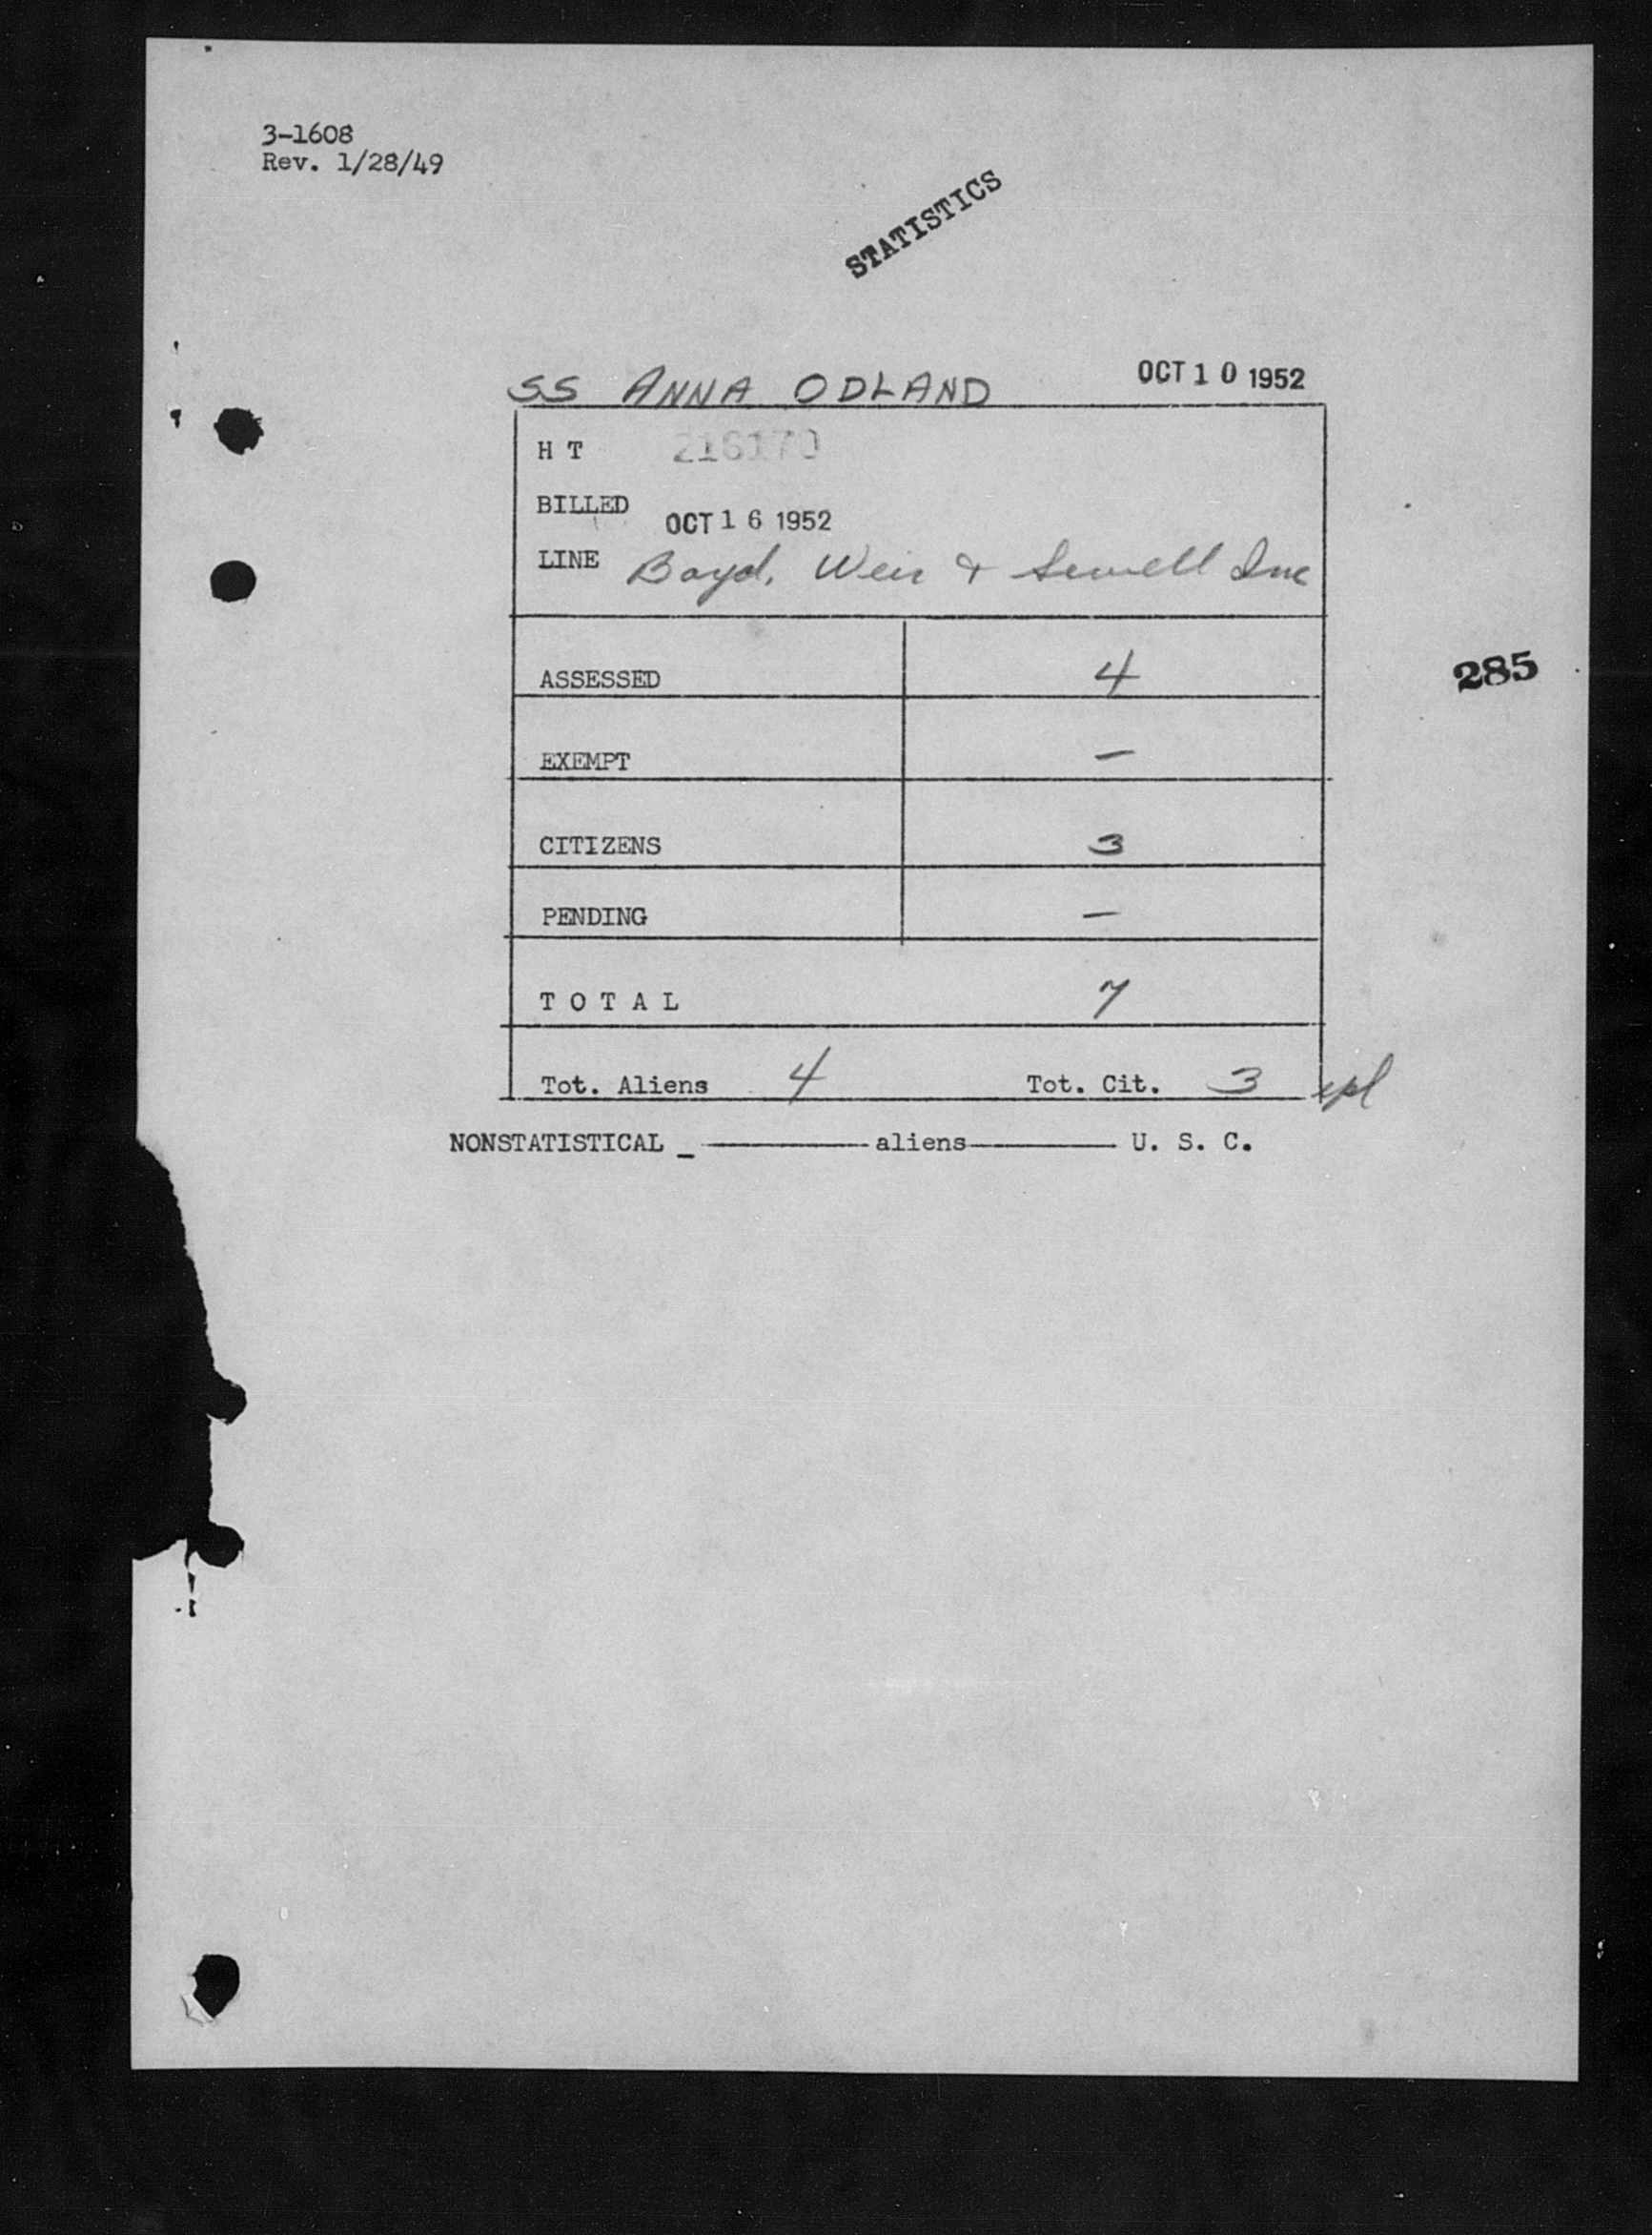 3-1608
Rev. 1/28/49
STATISTICS
SS ANNA ODLAND OCT 10 1952
H T 216170
BILLED OCT 16 1952
LINE Boyd, Weir & Sewell Inc
285
ASSESSED 4
EXEMPT —
CITIZENS 3
PENDING —
T O T A L 7
Tot. Aliens 4 Tot. Cit. 3
NONSTATISTICAL _ ———— aliens ———— U. S. C.